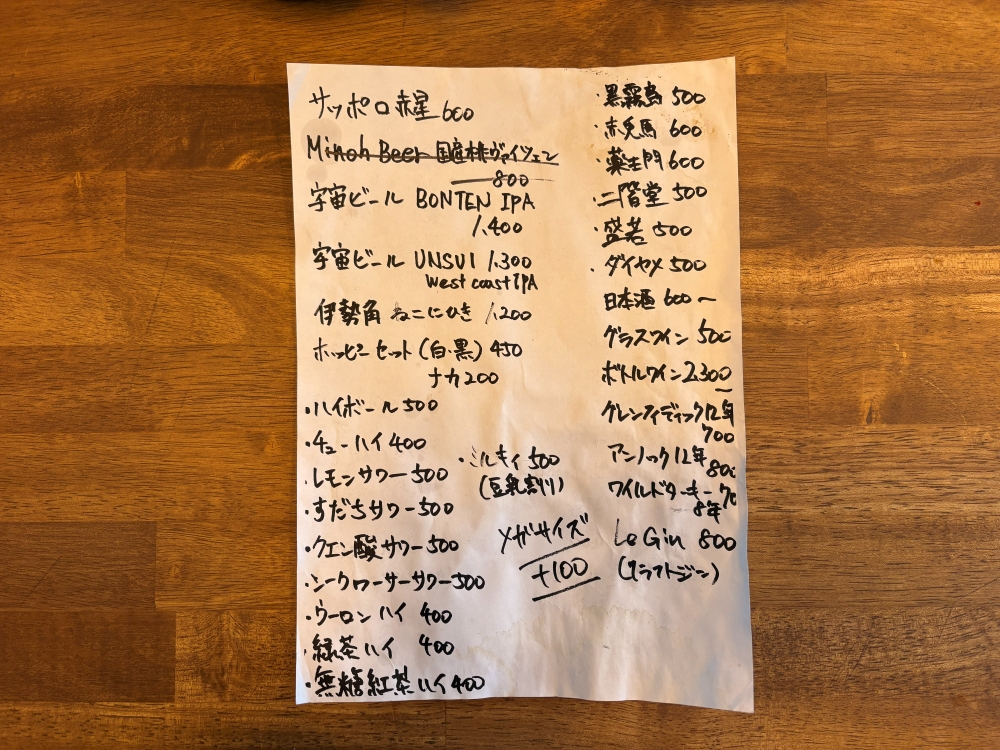 サッポロ赤星 600
Minoh Beer 国産桃ヴァイツェン
800
宇宙ビール BONTEN IPA
1,400
宇宙ビール UNSUI 1,300
West coast IPA
伊勢角 ねこにひき 1,200
ホッピーセット(白・黒) 450
ナカ200
・ハイボール500
・チューハイ400
・レモンサワー500
・すだちサワー500
・クエン酸サワー500
・シークワーサーサワー500
・ウーロンハイ 400
・緑茶ハイ 400
・無糖紅茶ハイ400
・ミルキィ500
(豆乳割り)
メガサイズ
+100
・黒霧島 500
・赤兎馬 600
・薬主門600
・二階堂 500
・盛若 500
・ダイヤメ500
日本酒 600〜
グラスワイン 500
ボトルワイン2,300〜
グレンフィディック12年
700
アンノック12年
800
ワイルドターキー 70
8年
Le Gin 800
(クラフトジン)